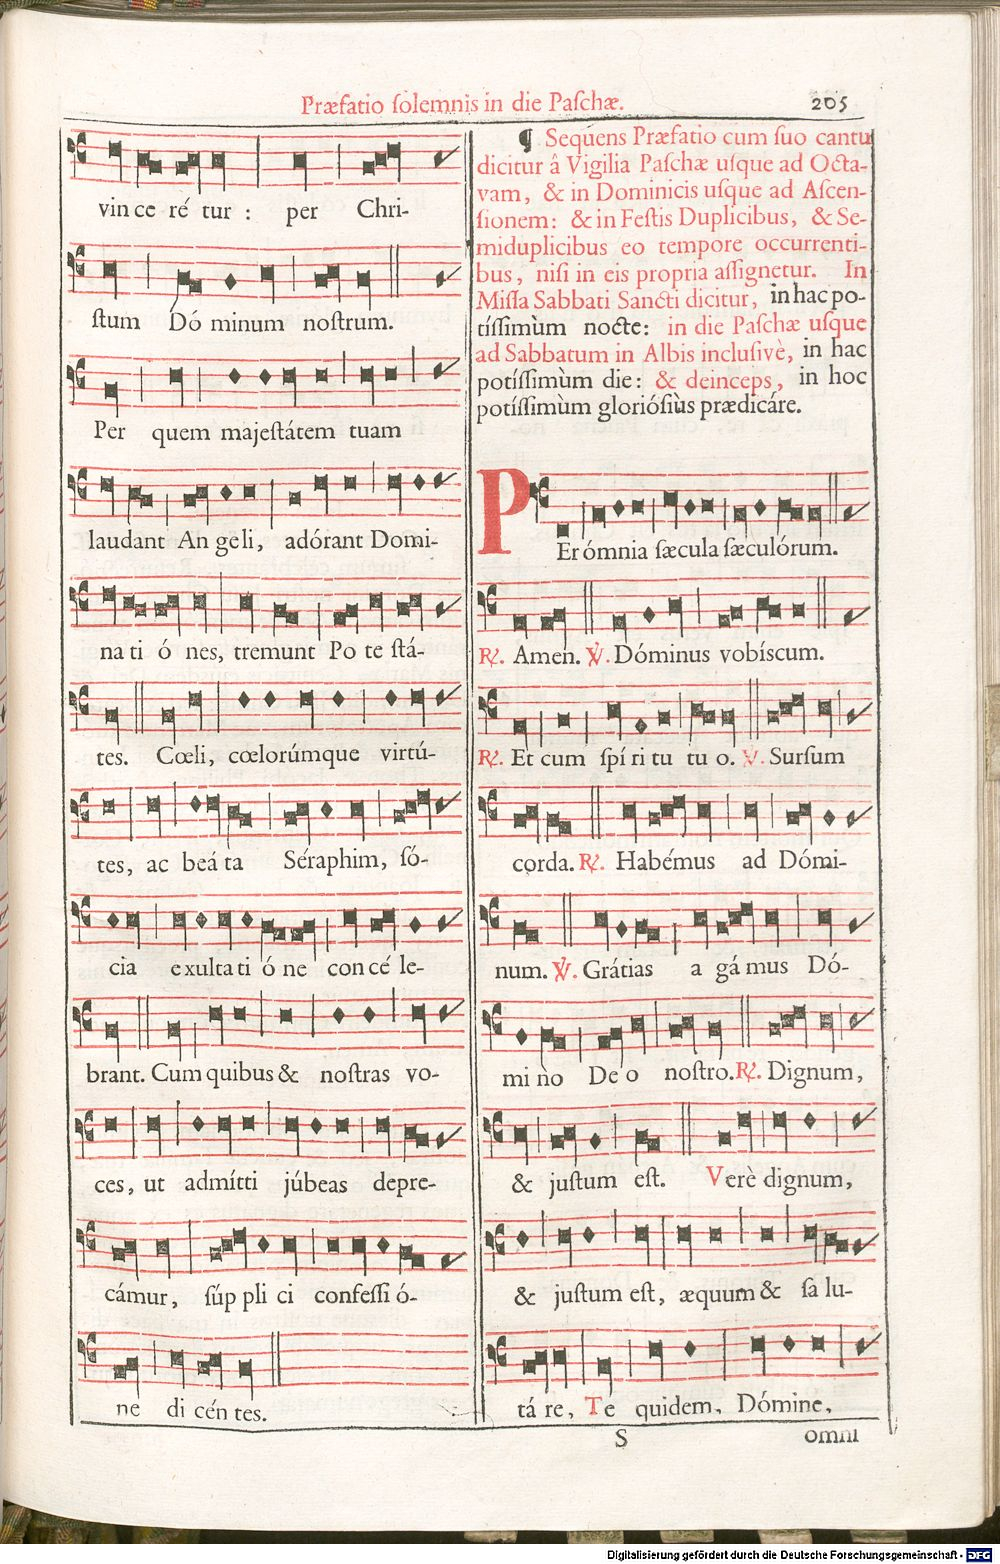 Præfatio ſolemnis in die Paſchæ.
205
vin ce ré tur : per Chri-
ſtum Dó minum noſtrum.
Per quem majeſtátem tuam
laudant An geli, adórant Domi-
na ti ó nes, tremunt Po te ſtá-
tes. Cœli, cœlorúmque virtú-
tes, ac beá ta Séraphim, ſó-
cia exulta ti ó ne con cé le-
brant. Cum quibus & noſtras vo-
ces, ut admítti júbeas depre-
cámur, ſúp pli ci confeſſi ó-
ne di cén tes.
¶ Sequens Præfatio cum ſuo cantu
dicitur â Vigilia Paſchæ uſque ad Octa-
vam, & in Dominicis uſque ad Aſcen-
ſionem: & in Feſtis Duplicibus, & Se-
miduplicibus eo tempore occurrenti-
bus, niſi in eis propria aſſignetur. In
Miſſa Sabbati Sancti dicitur, in hac po-
tíſſimùm nocte: in die Paſchæ uſque
ad Sabbatum in Albis incluſivè, in hac
potíſſimùm die: & deinceps, in hoc
potíſſimùm glorióſiùs prædicáre.
PEr ómnia ſæcula ſæculórum.
℟. Amen. ℣. Dóminus vobíscum.
℟. Et cum ſpí ri tu tu o. ℣. Surſum
corda. ℟. Habémus ad Dómi-
num. ℣. Grátias a gá mus Dó-
mi no De o noſtro. ℟. Dignum,
& juſtum eſt. Verè dignum,
& juſtum eſt, æquum & ſa lu-
tá re, Te quidem, Dómine,
S
omni
Digitalisierung gefördert durch die Deutsche Forschungsgemeinschaft - DFG